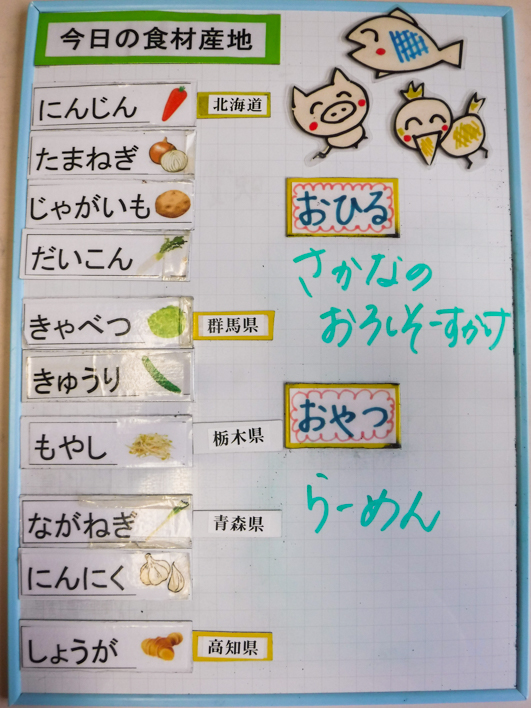 今日の食材産地
にんじん 北海道
たまねぎ
じゃがいも
だいこん
きゃべつ 群馬県
きゅうり
もやし 栃木県
ながねぎ 青森県
にんにく
しょうが 高知県
おひる
さかなの
おろしそーすかけ
おやつ
らーめん